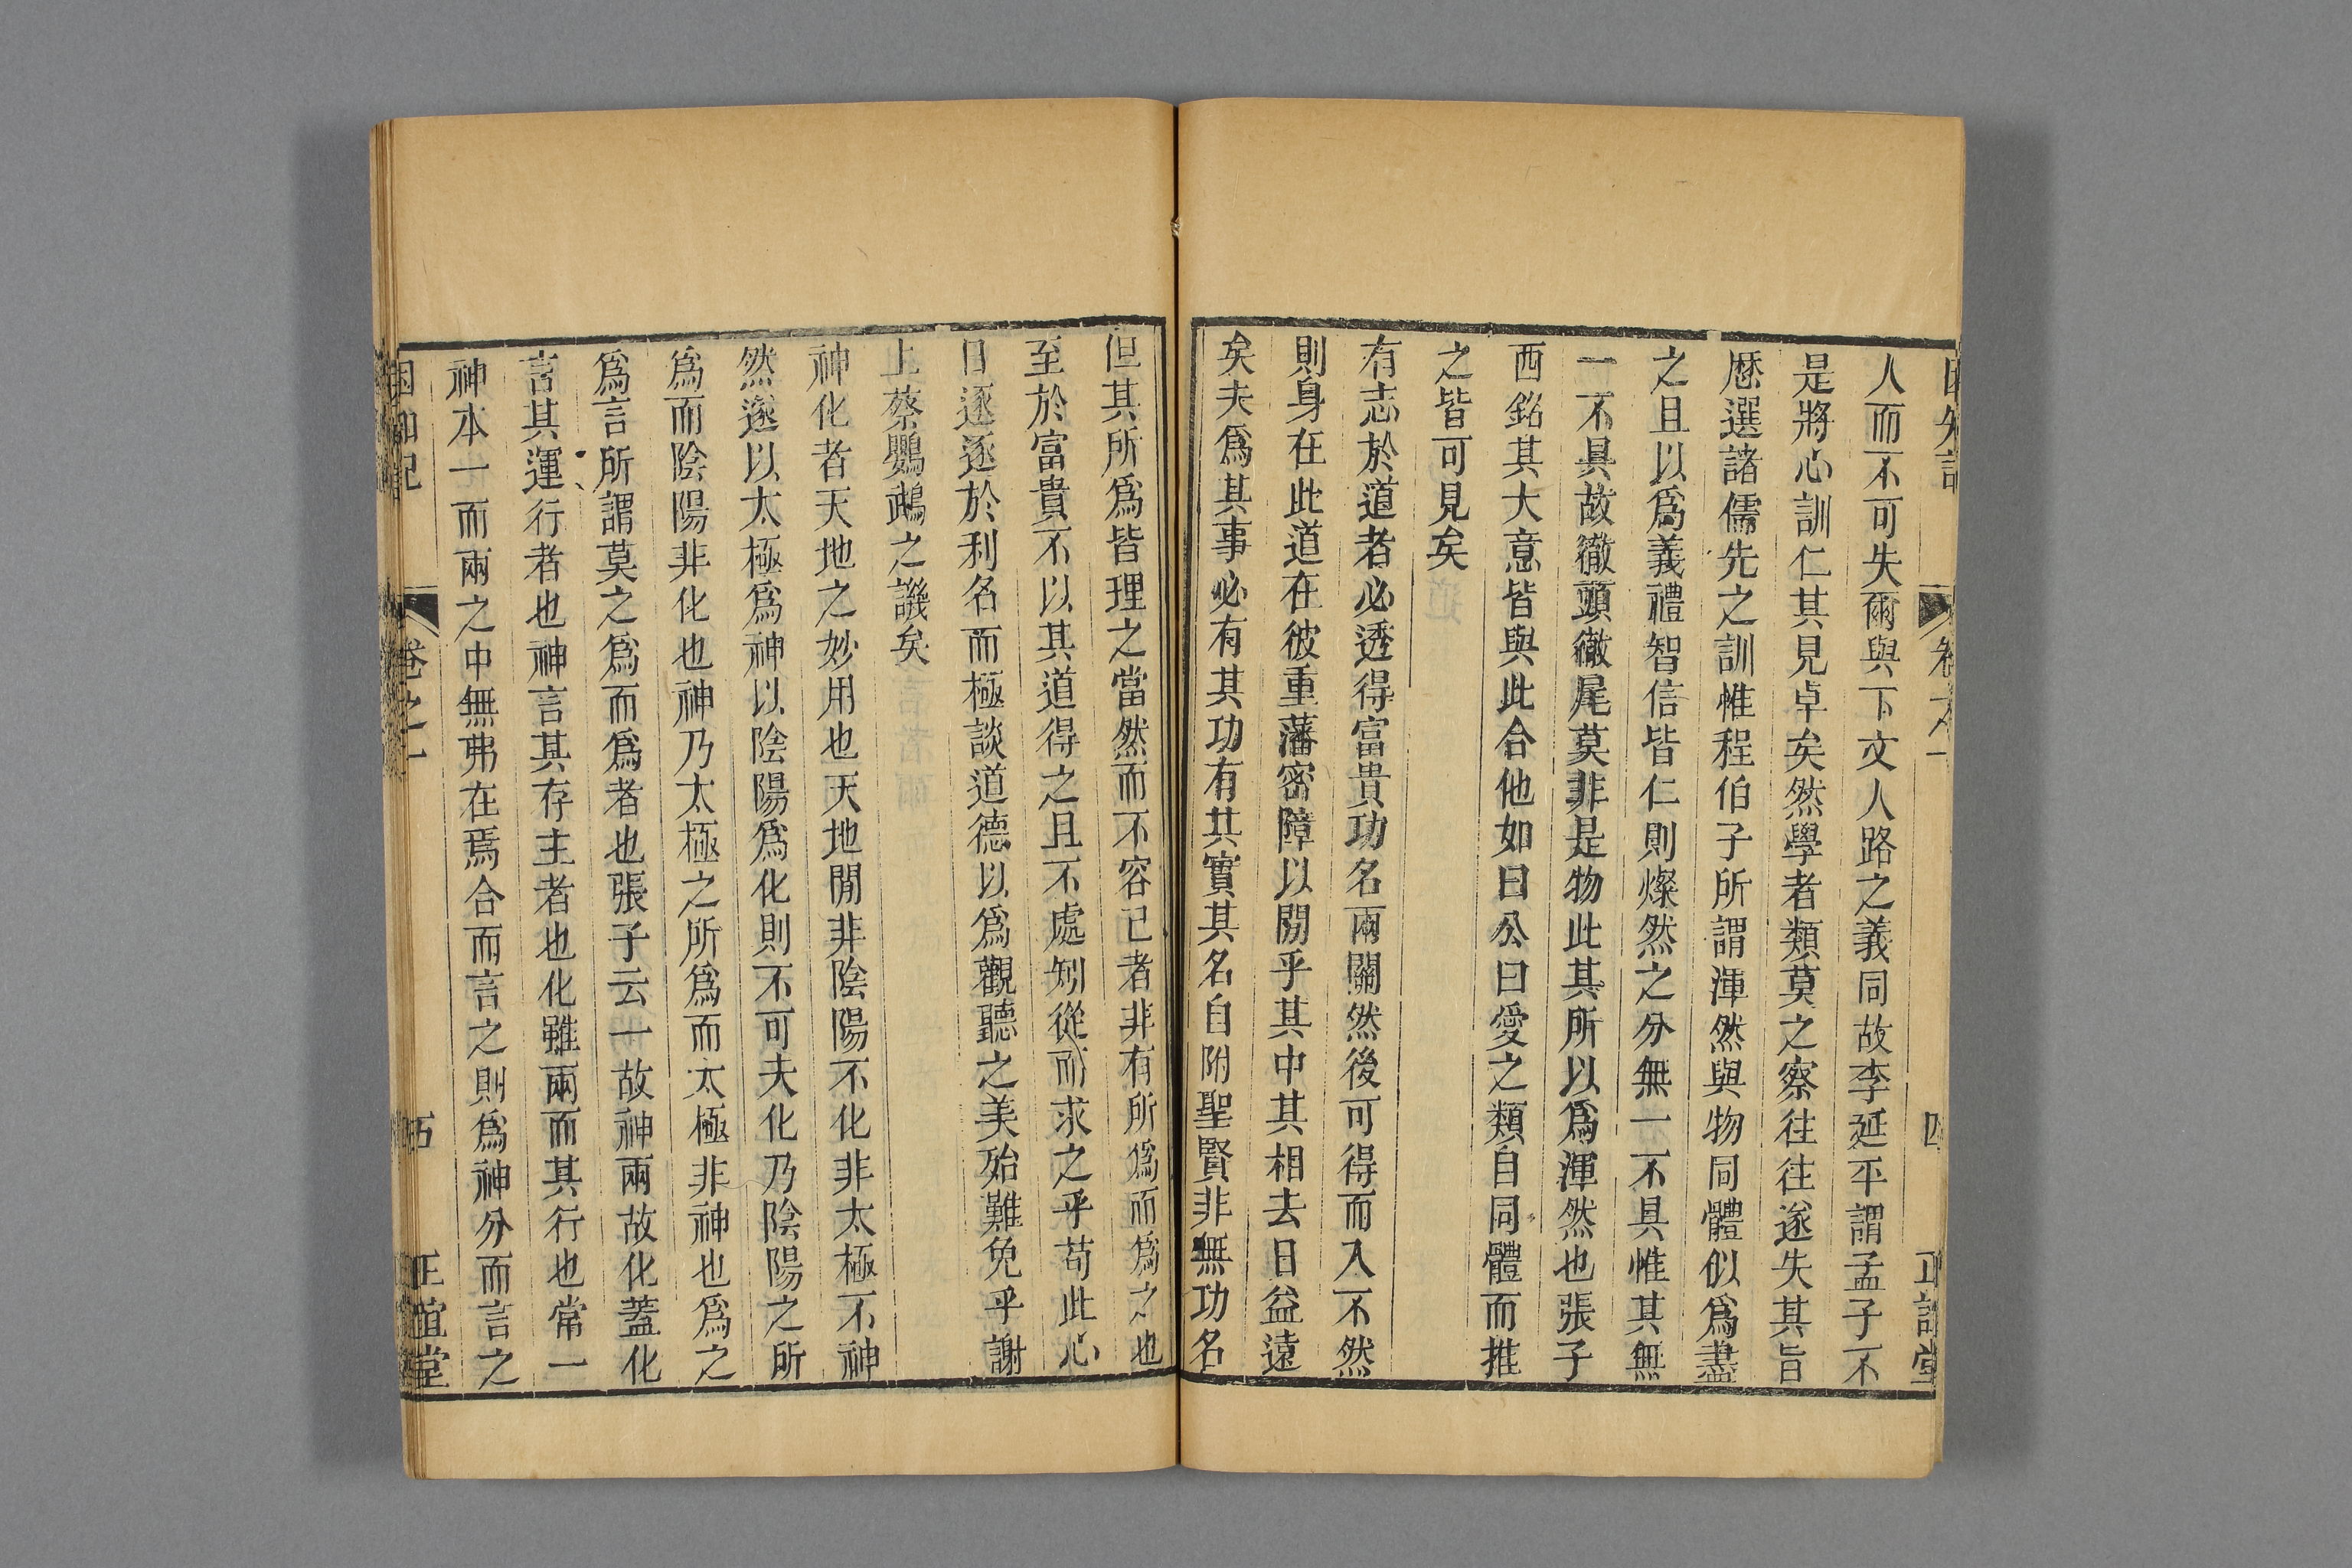 人而不可失爾與下文人路之義同故李延平謂孟子不
是將心訓仁其見卓矣然學者類莫之察往往遂失其旨
歷選諸儒先之訓惟程伯子所謂渾然與物同體似爲盡
之且以爲義禮智信皆仁則燦然之分無一不具惟其無
一不具故徹頭徹尾莫非是物此其所以爲渾然也張子
西銘其大意皆與此合他如曰公曰愛之類自同體而推
之皆可見矣
有志於道者必透得富貴功名兩關然後可得而入不然
則身在此道在彼重藩密障以間乎其中其相去日益遠
矣夫爲其事必有其功有其實其名自附聖賢非無功名
但其所爲皆理之當然而不容已者非有所爲而爲之也
至於富貴不以其道得之且不處矧從而求之乎苟此心
日逐逐於利名而極談道德以爲觀聽之美殆難免乎謝
上蔡鸚鵡之譏矣
神化者天地之妙用也天地間非陰陽不化非太極不神
然遂以太極爲神以陰陽爲化則不可夫化乃陰陽之所
爲而陰陽非化也神乃太極之所爲而太極非神也爲之
爲言所謂莫之爲而爲者也張子云一故神兩故化蓋化
言其運行者也神言其存主者也化雖兩而其行也常一
神本一而兩之中無弗在焉合而言之則爲神分而言之
困知記
卷之一
五
正誼堂